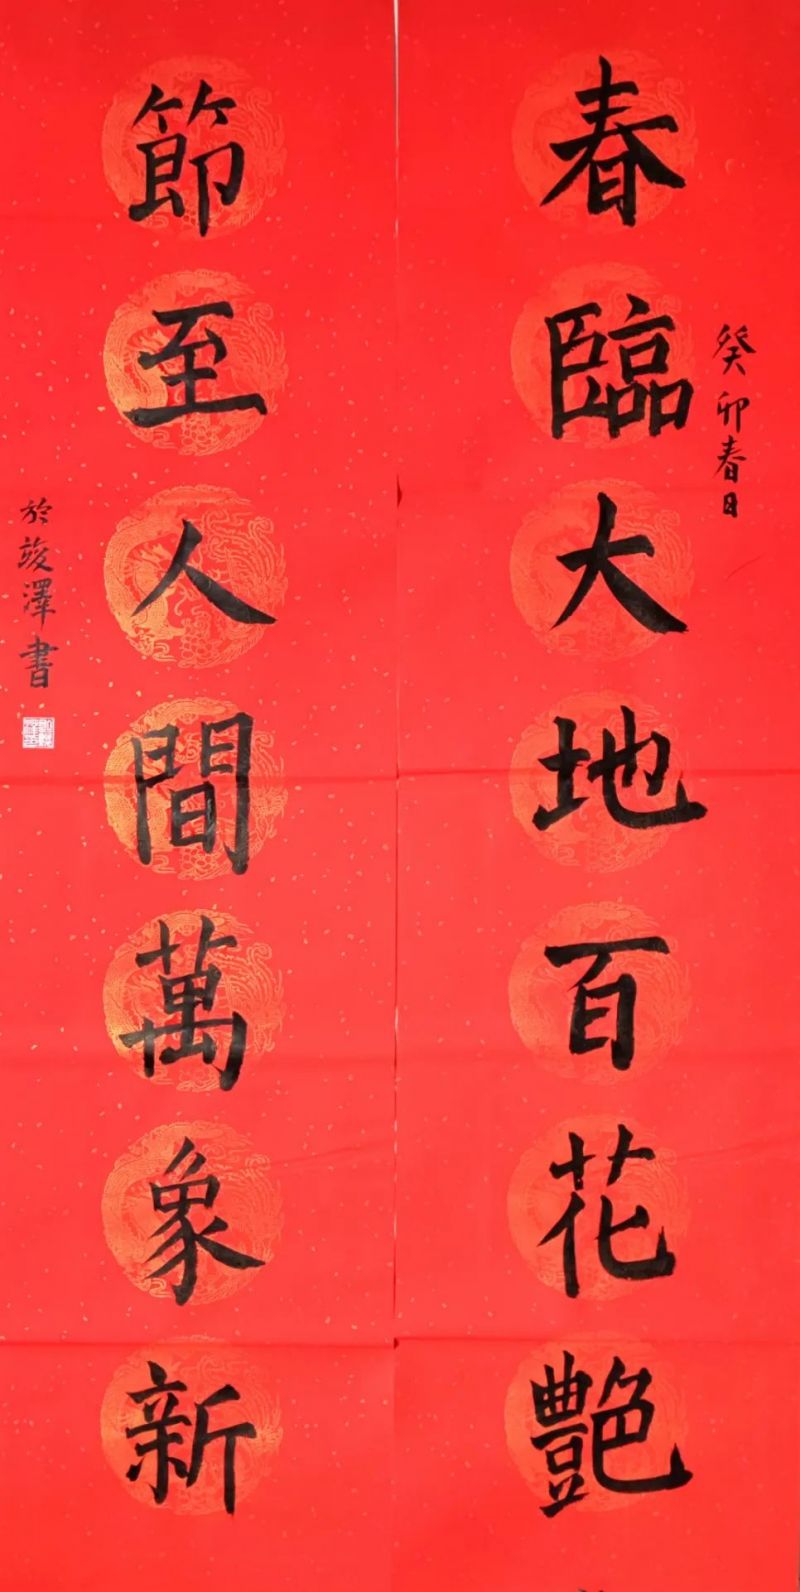 癸卯春日
春臨大地百花艷
節至人間萬象新
於竣澤書